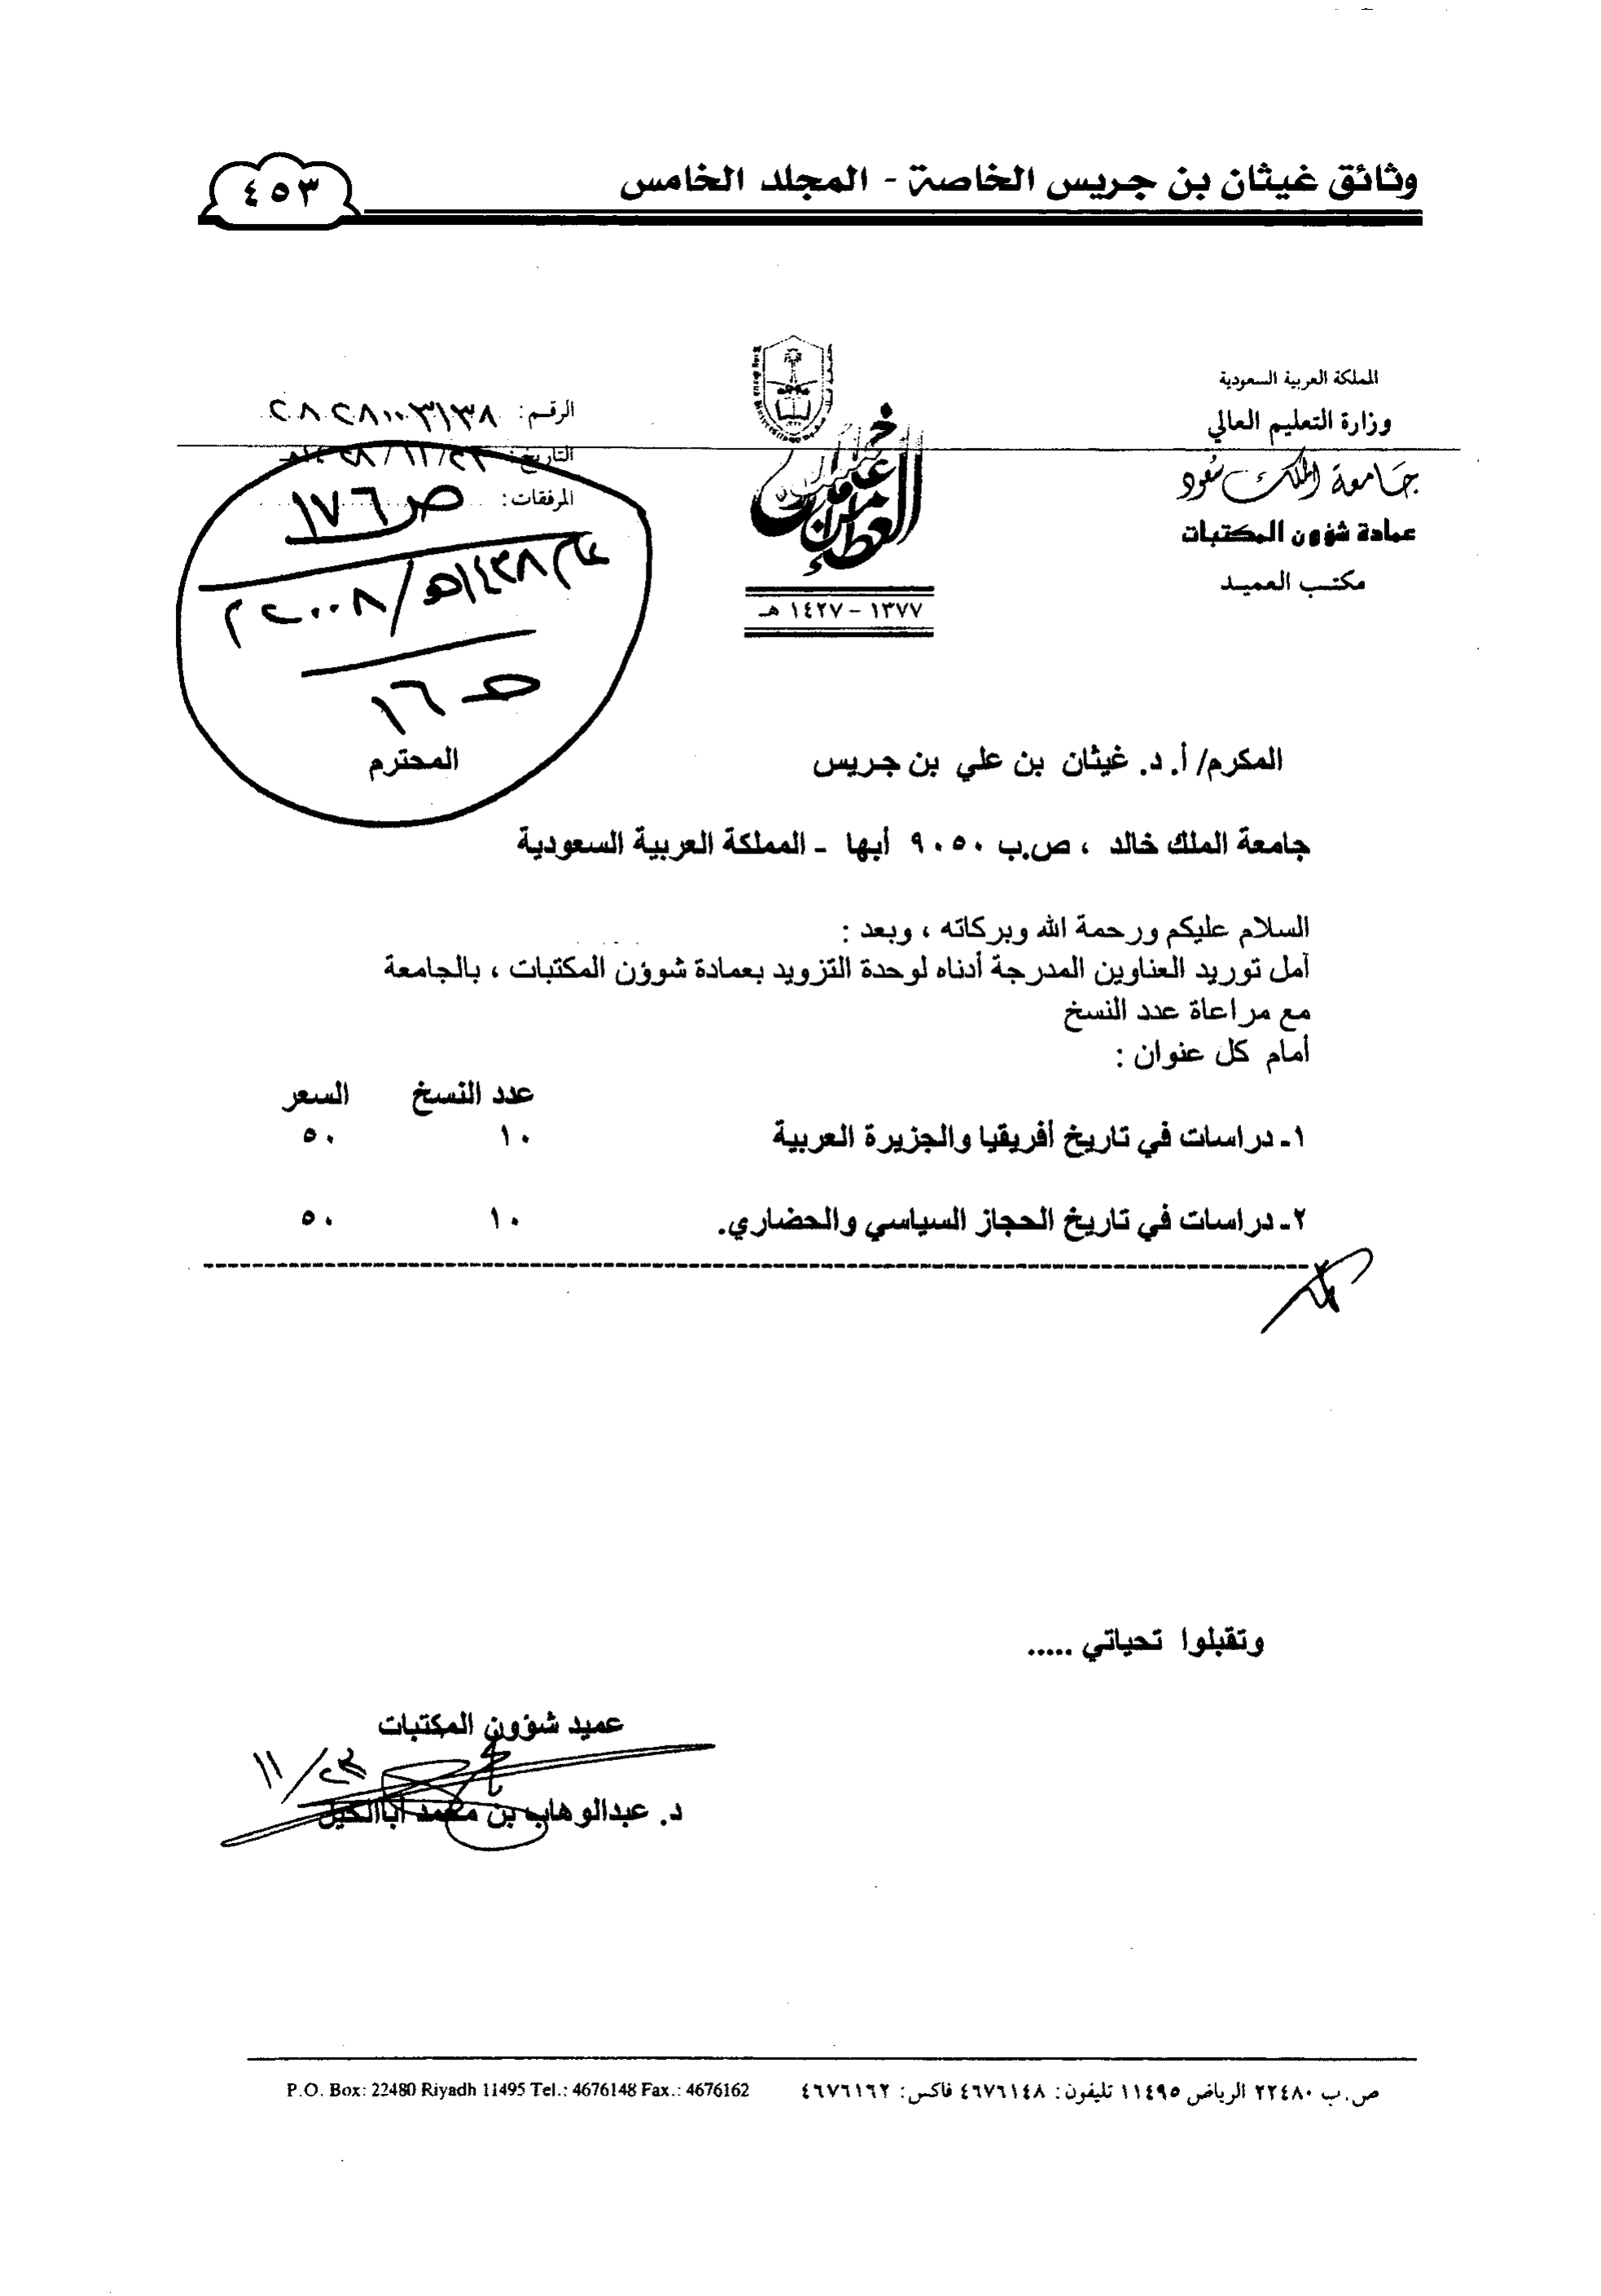 وثائق غيثان بن جريس الخاصة - المجلد الخامس
٤٥٣
المملكة العربية السعودية
وزارة التعليم العالي
جامعة الملك سعود
عمادة شؤون المكتبات
مكتب العميد
خمسون عاماً من العطاء
١٣٧٧ - ١٤٢٧ هـ
الرقم: ٢٨٢٨٠٠٣١٣٨
التاريخ: / ١١ / ١٤٢٨هـ
المرفقات:
ص ١٧٦
عام ١٤٢٨هـ / ٢٠٠٨م
المكرم/ أ. د. غيثان بن علي بن جريس المحترم
جامعة الملك خالد ، ص.ب ٩٠٥٠ أبها - المملكة العربية السعودية
السلام عليكم ورحمة الله وبركاته ، وبعد :
آمل توريد العناوين المدرجة أدناه لوحدة التزويد بعمادة شوؤن المكتبات ، بالجامعة
مع مراعاة عدد النسخ
أمام كل عنوان :
عدد النسخ السعر
١- دراسات في تاريخ أفريقيا والجزيرة العربية ١٠ ٥٠
٢- دراسات في تاريخ الحجاز السياسي والحضاري. ١٠ ٥٠
وتقبلوا تحياتي .....
عميد شؤون المكتبات
١١/٢٣
د. عبدالوهاب بن محمد أباالخيل
ص.ب ٢٢٤٨٠ الرياض ١١٤٩٥ تليفون: ٤٦٧٦١٤٨ فاكس: ٤٦٧٦١٦٢
P.O. Box: 22480 Riyadh 11495 Tel.: 4676148 Fax.: 4676162